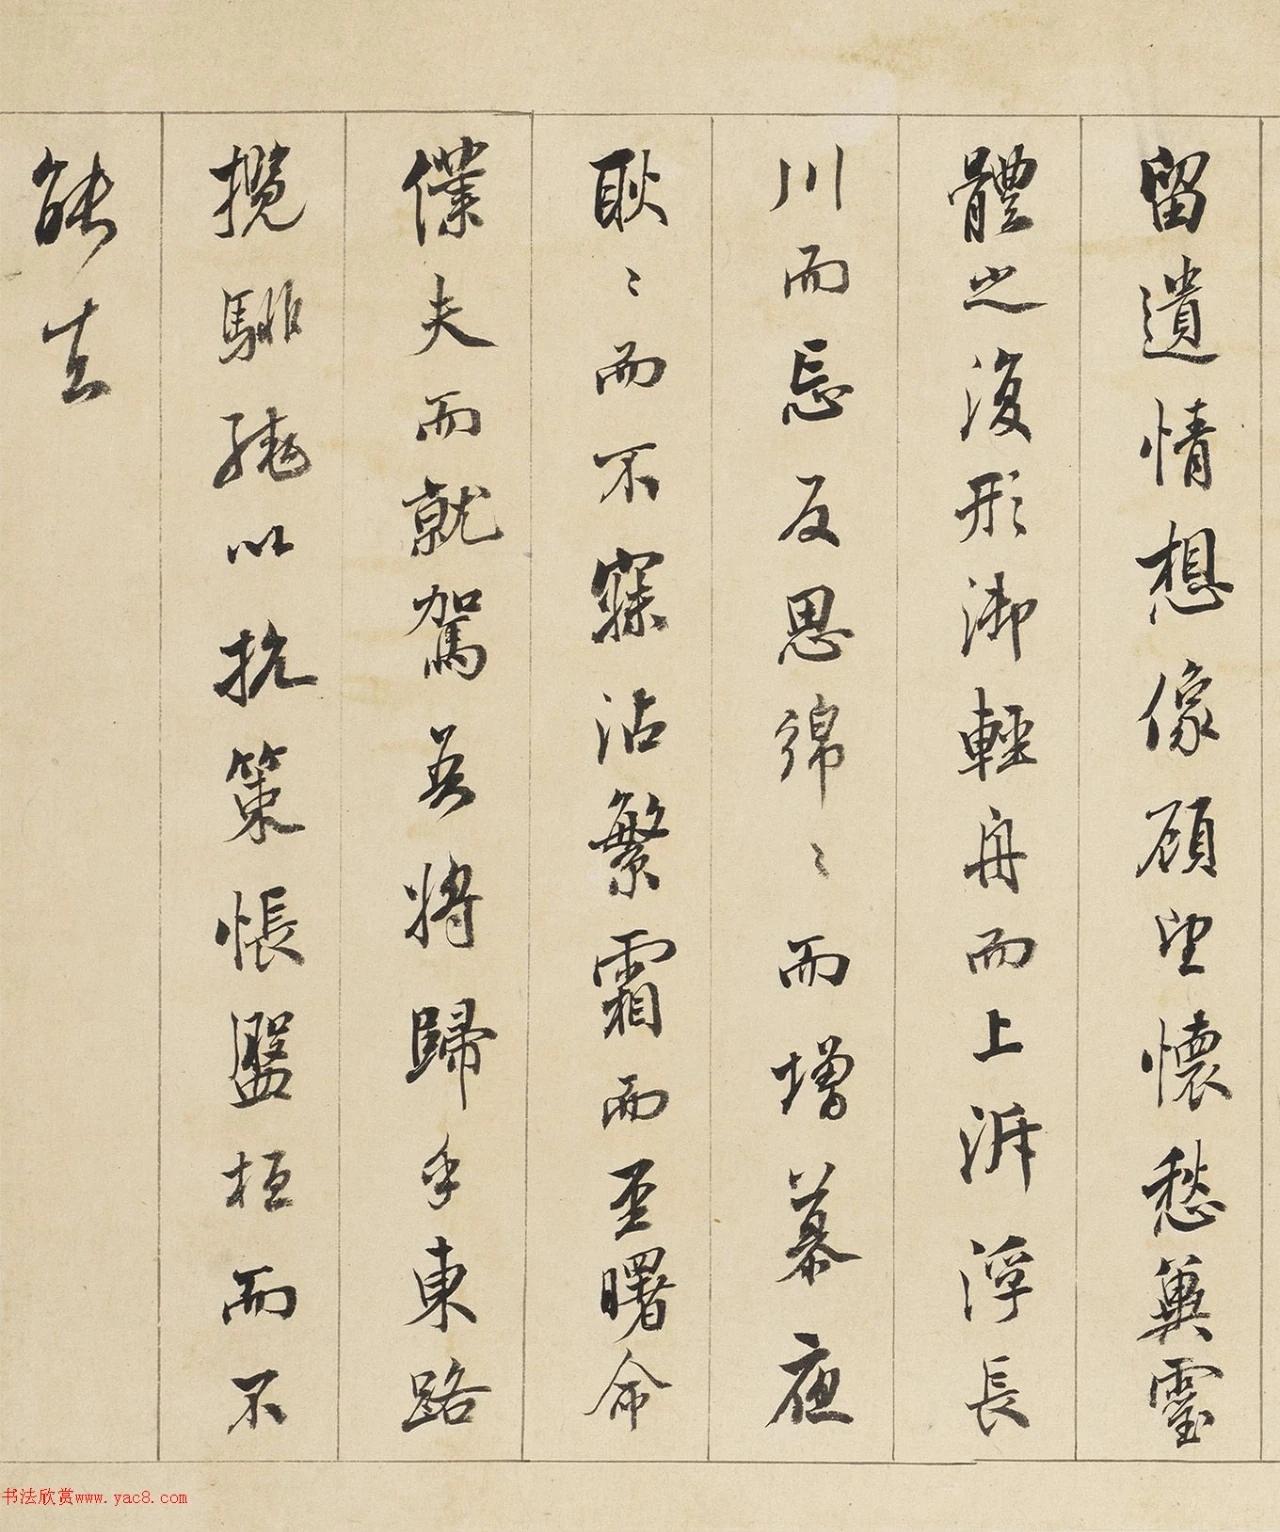 留遺情想像顧望懷愁冀靈
體之復形御輕舟而上泝浮長
川而忘反思綿〻而增慕夜
耿〻而不寐沾繁霜而至曙命
僕夫而就駕吾將歸乎東路
攬騑轡以抗策悵盤桓而不
能去
书法欣赏www.yac8.com